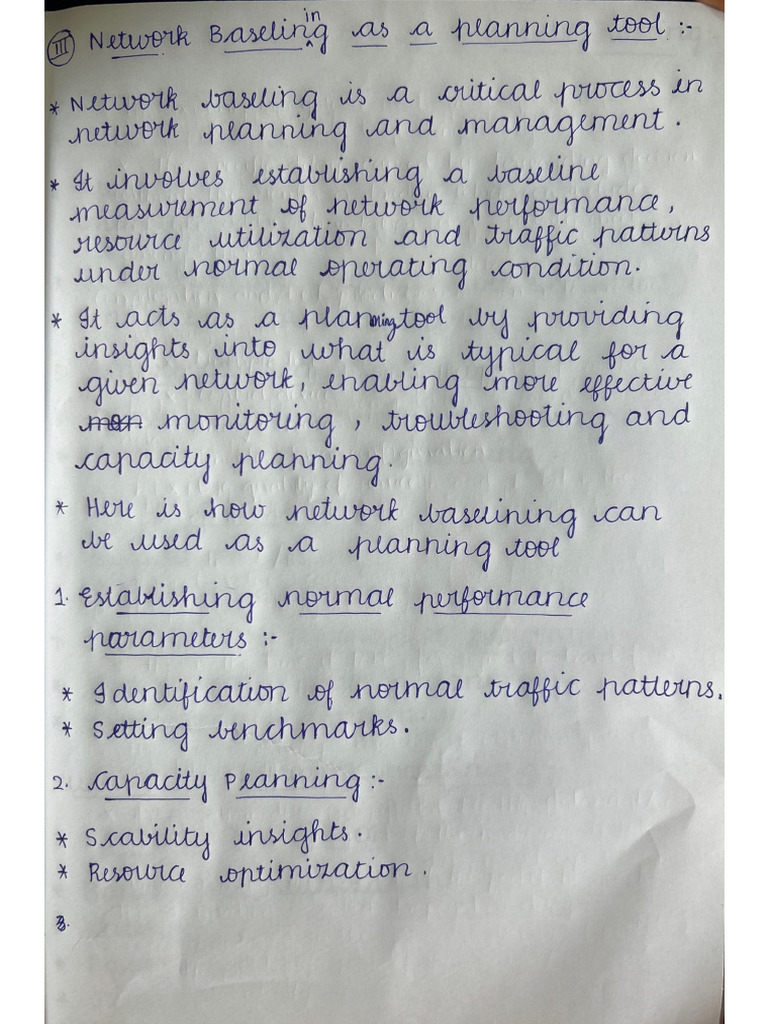 III Network Baselining as a planning tool :-
* Network baseling is a critical process in
network planning and management.
* It involves establishing a baseline
measurement of network performance,
resource utilization and traffic patterns
under normal operating condition.
* It acts as a planning tool by providing
insights into what is typical for a
given network, enabling more effective
monitoring, troubleshooting and
capacity planning.
* Here is how network baselining can
be used as a planning tool
1. Establishing normal performance
parameters :-
* Identification of normal traffic patterns.
* Setting benchmarks.
2. Capacity Planning :-
* Scability insights.
* Resource optimization.
3.